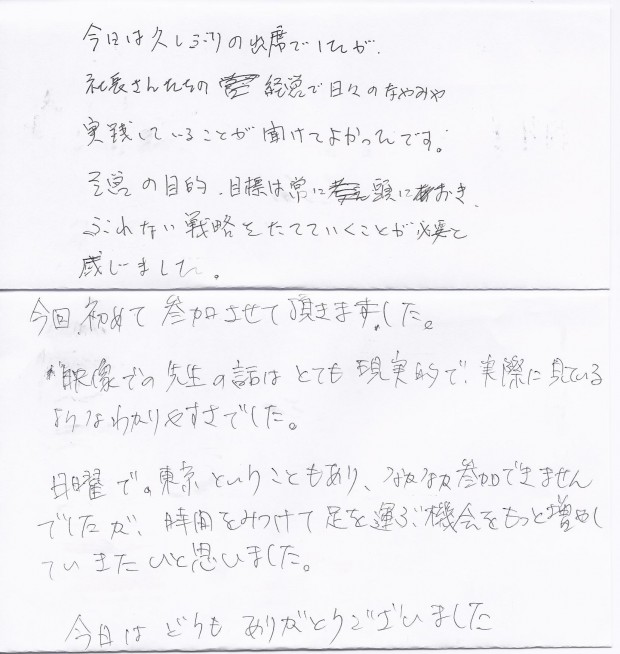 今日は久しぶりの出席でしたが、
社長さんたちの 経営で日々のなやみや
実践していることが聞けてよかったです。
経営の目的、目標は常に頭におき、
ぶれない戦略をたてていくことが必要と
感じました。
今回、初めて参加させて頂きました。
映像での先生の話はとても現実的で、実際に見ている
ようなわかりやすさでした。
日曜で、東京ということもあり、なかなか参加できません
でしたが、時間をみつけて足を運ぶ機会をもっと増やし
ていきたいと思いました。
今日はどうもありがとうございました